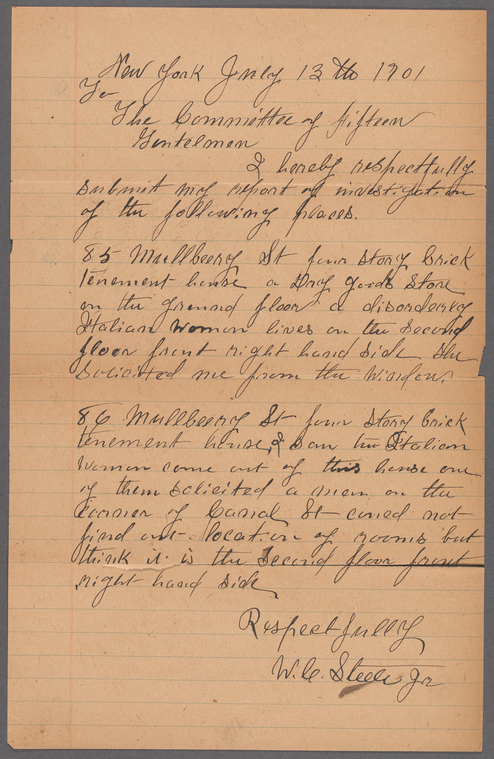 New York July 13th 1901
To
The Committee of fifteen
Gentelmen
I hereby respectfully
submitt my report of investigation
of the following places.
85 Mullbeery St four story brick
tenement house a Dry goods Store
on the ground floor a disorderly
Italian woman lives on the second
floor front right hand side she
solicited me from the window.
86 Mullbeery St four story brick
tenement house, I saw two Italian
women come out of this house one
of them solicited a man on the
corner of Canal St coued not
find out location of rooms but
think it is the second floor front
right hand side
Respectfully
W.C. Steele Jr